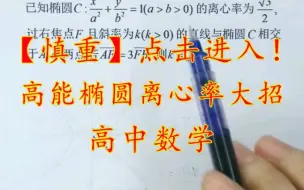 已知椭圆C:x²/a²+y²/b²=1(a>b>0)的离心率为√3/2,
过右焦点F且斜率为k(k>0)的直线与椭圆C相交
【慎重】点击进入!
高能椭圆离心率大招
高中数学